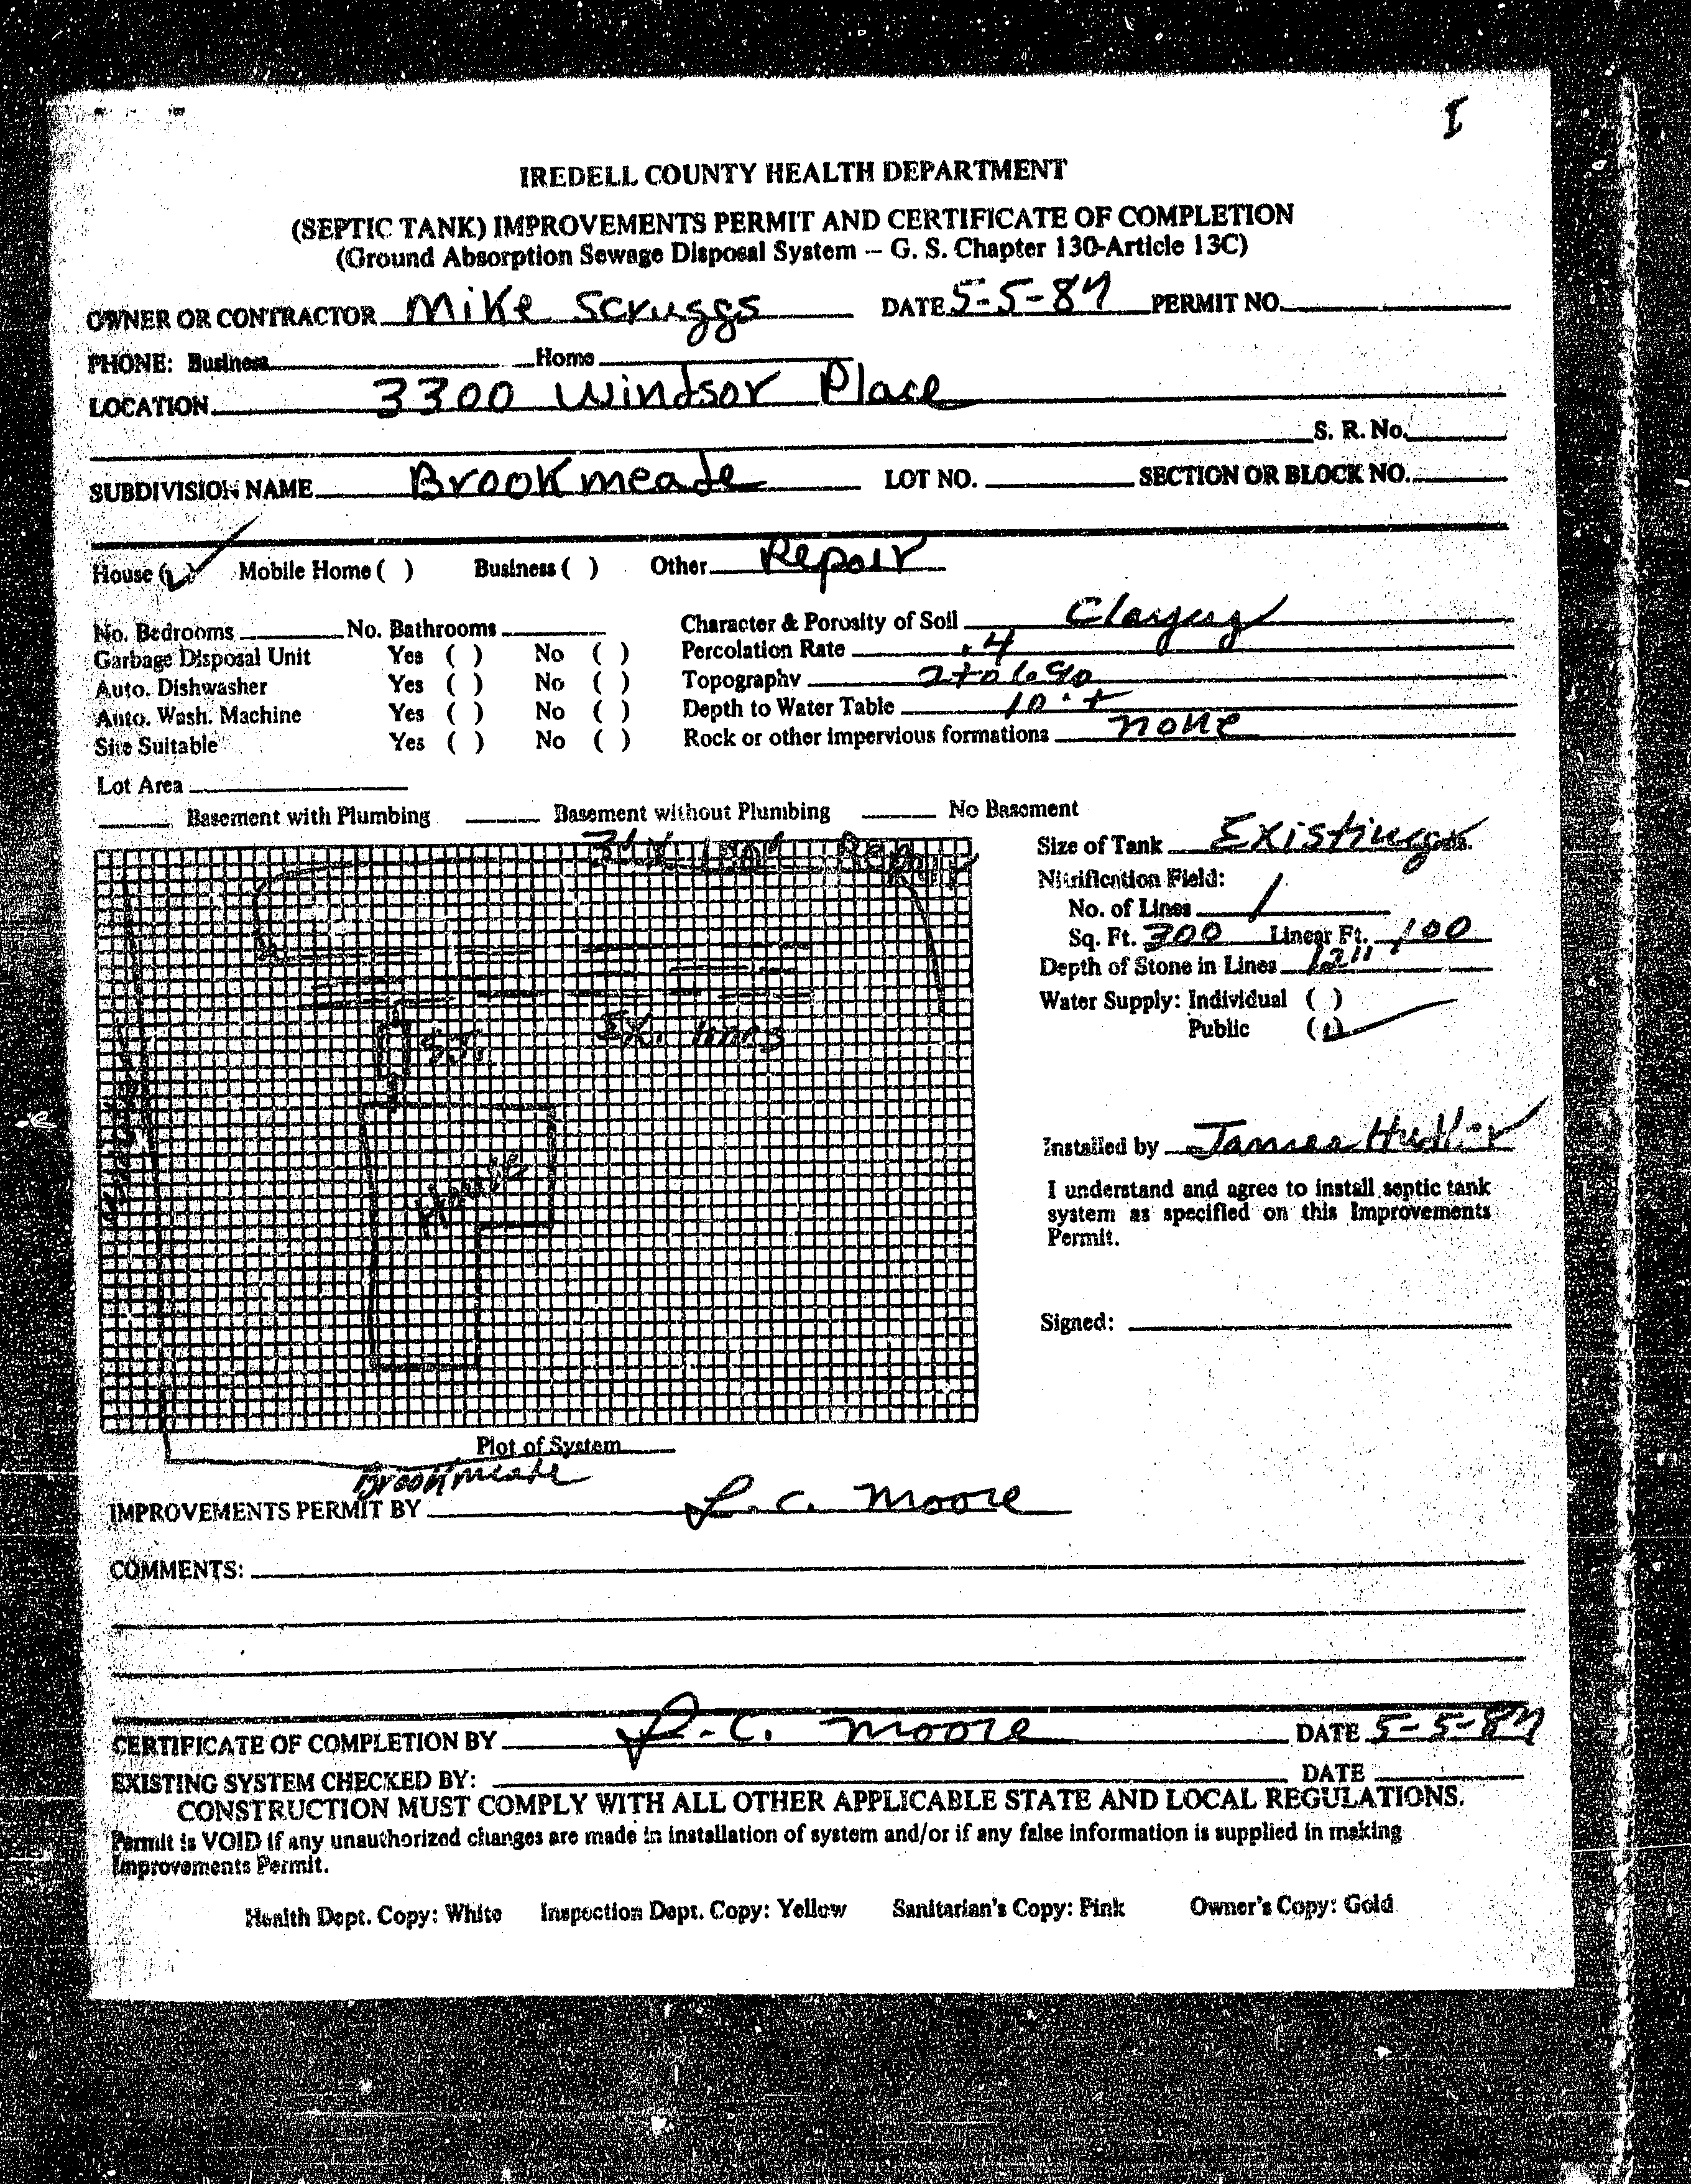 I
IREDELL COUNTY HEALTH DEPARTMENT
(SEPTIC TANK) IMPROVEMENTS PERMIT AND CERTIFICATE OF COMPLETION
(Ground Absorption Sewage Disposal System – G. S. Chapter 130-Article 13C)
OWNER OR CONTRACTOR Mike Scruggs DATE 5-5-87 PERMIT NO.
PHONE: Business Home
LOCATION 3300 Windsor Place
S. R. No.
SUBDIVISION NAME Brookmeade LOT NO. SECTION OR BLOCK NO.
House (✓) Mobile Home ( ) Business ( ) Other Repair
No. Bedrooms No. Bathrooms Character & Porosity of Soil Clayey
Garbage Disposal Unit Yes ( ) No ( ) Percolation Rate .4
Auto. Dishwasher Yes ( ) No ( ) Topography 2 to 6 %
Auto. Wash. Machine Yes ( ) No ( ) Depth to Water Table 10'+
Site Suitable Yes ( ) No ( ) Rock or other impervious formations none
Lot Area
Basement with Plumbing Basement without Plumbing No Basement
3' X 100' Repair
Size of Tank Existing Gals.
Nitrification Field:
No. of Lines 1
Sq. Ft. 300 Linear Ft. 100
Depth of Stone in Lines 12"
Water Supply: Individual ( )
Public (✓)
S.T.
Ex. lines
House
Installed by James Hudler
I understand and agree to install septic tank
system as specified on this Improvements
Permit.
Signed:
Plot of System
Brookmeade
IMPROVEMENTS PERMIT BY L. C. Moore
COMMENTS:
CERTIFICATE OF COMPLETION BY L. C. Moore DATE 5-5-87
EXISTING SYSTEM CHECKED BY: DATE
CONSTRUCTION MUST COMPLY WITH ALL OTHER APPLICABLE STATE AND LOCAL REGULATIONS.
Permit is VOID if any unauthorized changes are made in installation of system and/or if any false information is supplied in making
Improvements Permit.
Health Dept. Copy: White Inspection Dept. Copy: Yellow Sanitarian's Copy: Pink Owner's Copy: Gold